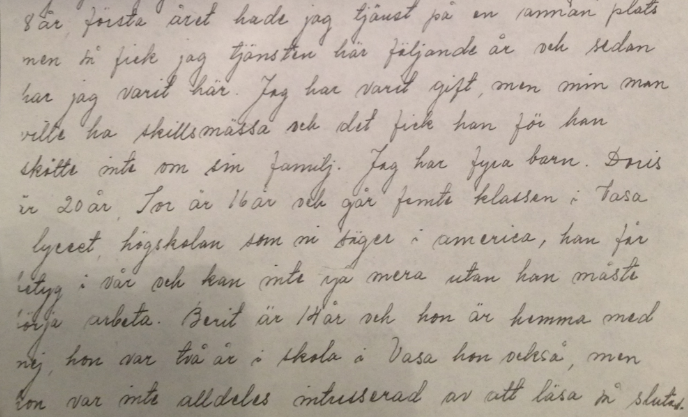 8 år, första året hade jag tjänst på en annan plats
men så fick jag tjänsten här följande år och sedan
har jag varit här. Jag har varit gift, men min man
ville ha skillsmässa och det fick han för han
skötte inte om sin familj. Jag har fyra barn. Doris
är 20 år, Tor är 16 år och går femte klassen i Vasa
lyceet, högskolan som ni säger i america, han får
betyg i vår och kan inte gå mera utan han måste
börja arbeta. Berit är 14 år och hon är hemma med
mej, hon var två år i skola i Vasa hon också, men
hon var inte alldeles intresserad av att läsa så slutade